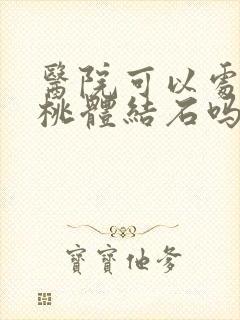 醫院可以處
桃體結石嗎
寶寶他爹